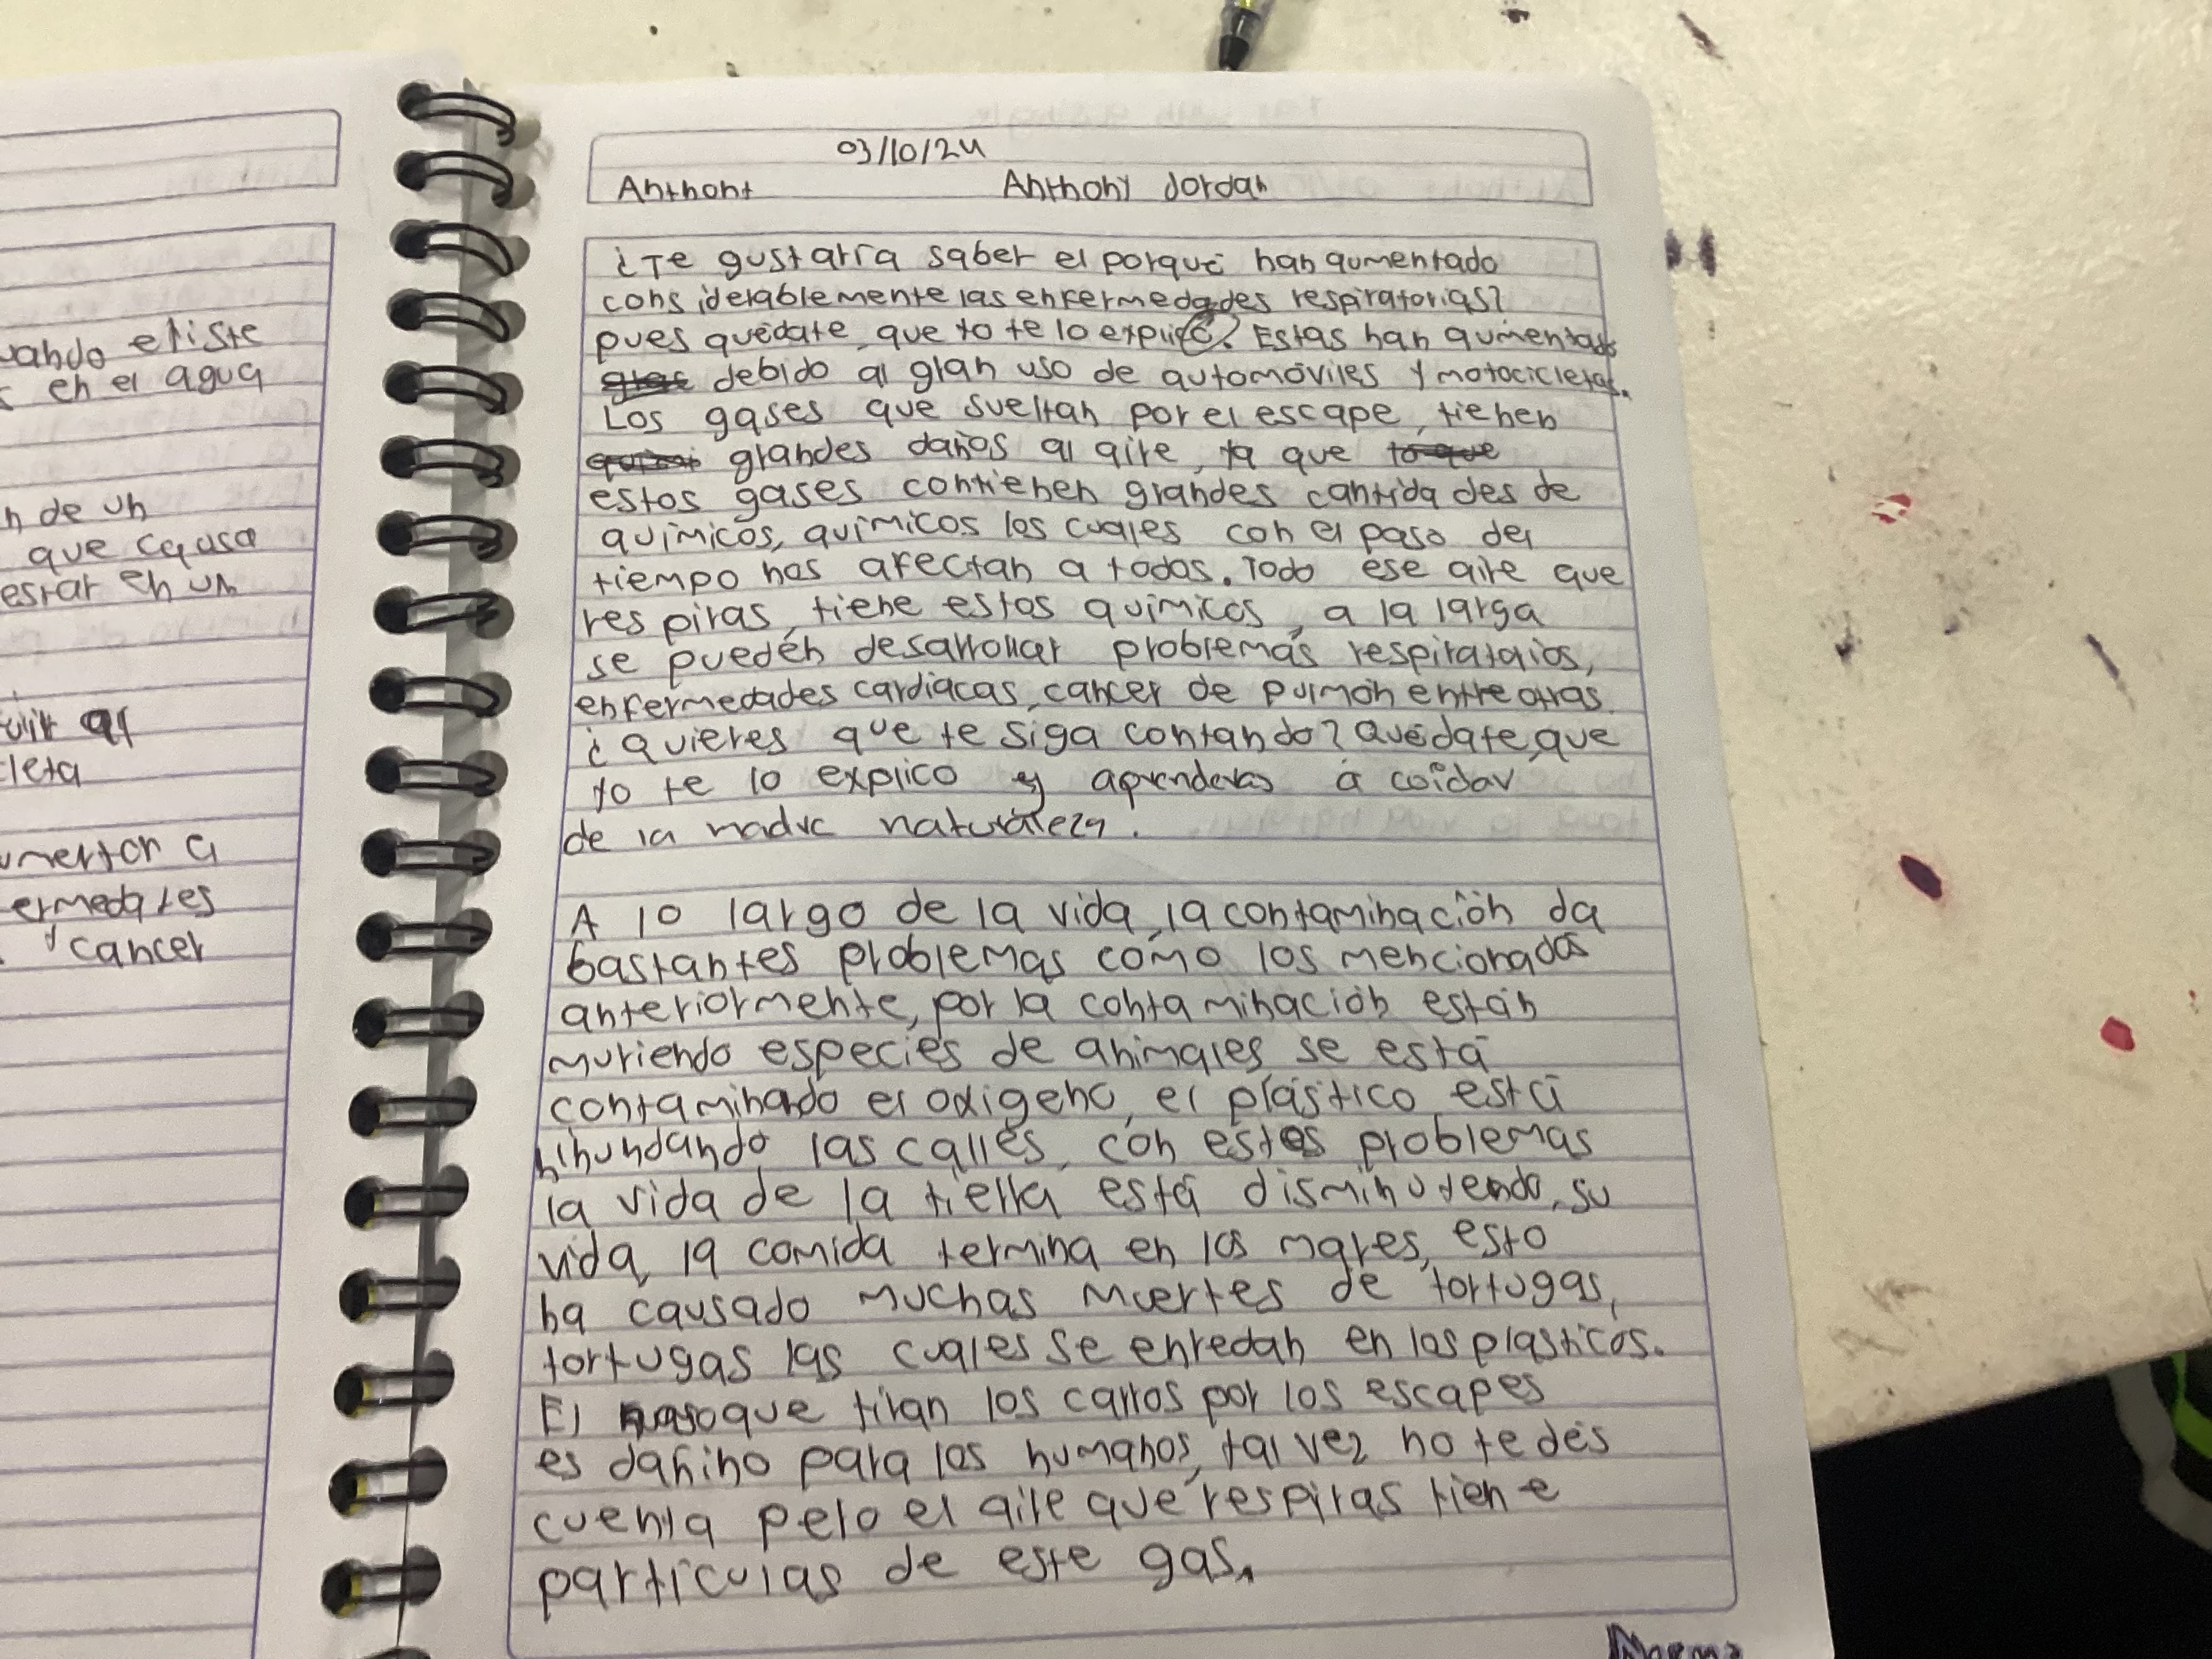 uando existe
en el agua
n de un
que causa
estar en un
al
cleta
ermedades
y cancer
03/10/24
Anthony Anthony Jordan
¿Te gustarra saber el porqué han aumentado
considerablemente las enfermedades respiratorias?
pues quédate, que yo te lo explico. Estas han aumentado
debido al gran uso de automóviles y motocicletas.
Los gases que sueltan por el escape, tienen
grandes daños al aire, ya que
estos gases contienen grandes cantidades de
químicos, químicos los cuales con el paso del
tiempo nos afectan a todos. Todo ese aire que
respiras, tiene estos químicos, a la larga
se puedén desarrollar problemás respirataios,
enfermedades cardiacas, cancer de pulmón entre otras.
¿Quieres que te siga contando? Quédate, que
yo te lo explico y aprenderas a coidar
de la madre naturaleza.
A lo largo de la vida, la contaminación da
bastantes problemas como los mencionados
anteriormente, por la contaminación están
muriendo especies de animales, se está
contaminando el oxigeno, el plástico está
inundando las calles, con estos problemas
la vida de la tierra está disminuyendo, su
vida, la comida termina en los mares, esto
ha causado muchas muertes de tortugas,
tortugas las cuales se enredan en los plasticos.
El que tiran los carros por los escapes
es dañino para los humanos, tal vez no te dés
cuenta pero el aire que respiras tiene
particulas de este gas.
Norma